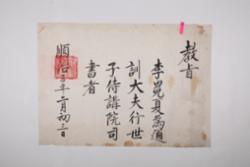 敎旨
李冕夏爲通
訓大夫行世
子侍講院司
書者
順治三年二月初三日